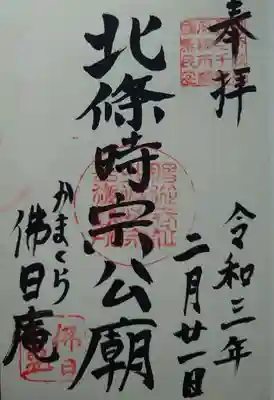 奉拝
令和三年
二月廿一日
北條時宗公廟
かまくら
佛日庵
佛日